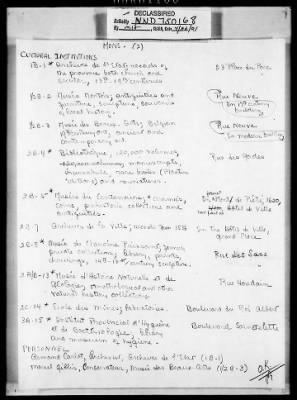 DECLASSIFIED
Authority NND 750168
MONS. (2)
CULTURAL INSTITUTIONS
1B-1 * Archives de l'Etat; records of
the province both church and
secular, 13th-19th centuries
23 Place du Parc
1B-2 * Musée
furniture, sculpture, souvenirs
of local history.
Rue Neuve
(in 17th century
building)
2B-3 * Musée des Beaux-Arts; Belgian
19th century art, ancient and
contemporary art.
Rue Neuve
(in modern building)
2B-4 * Bibliothèque, 120,000 volumes,
manuscripts,
incunabula, rare books (Plantin
editions) and
Rue des
2B-5 * Musée du Centenaire, ceramics,
coins, prehistoric collections and
antiquities.
Mont de Piété, 1620,
Hôtel de Ville
2B-7 Archives de la Ville; records from
In the Hôtel de Ville,
Grand Place
2B-8 * Musée du Chanoine Puissant;
private collections, library,
drawings, sculpture.
Rue des
2A/B-13 * Musée d'Histoire Naturelle et de
Géologie; and other
natural history collections.
Rue Houdain
2C-14 * Ecole des Mines; laboratories.
Boulevard du Roi Albert
3A-15 * Institut Provincial d'Hygiène
et de Bactériologie; library
and museum of hygiene.
Boulevard Sainctelette
PERSONNEL
Armand Carlot, Archivist, Archives de l'Etat (1B-1)
Marcel Gillis, Conservateur, Musée des Beaux-Arts (2B-3)